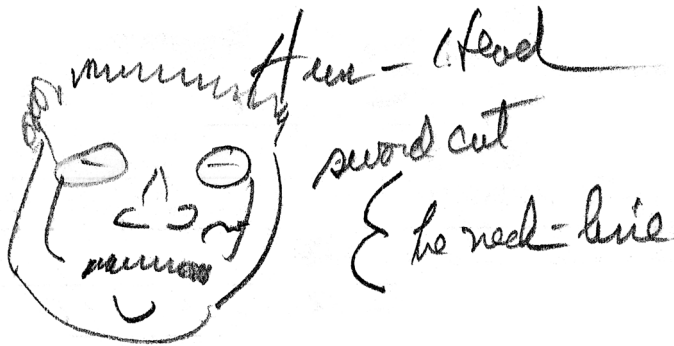 Hun - Head
sword cut
{ he neck - line